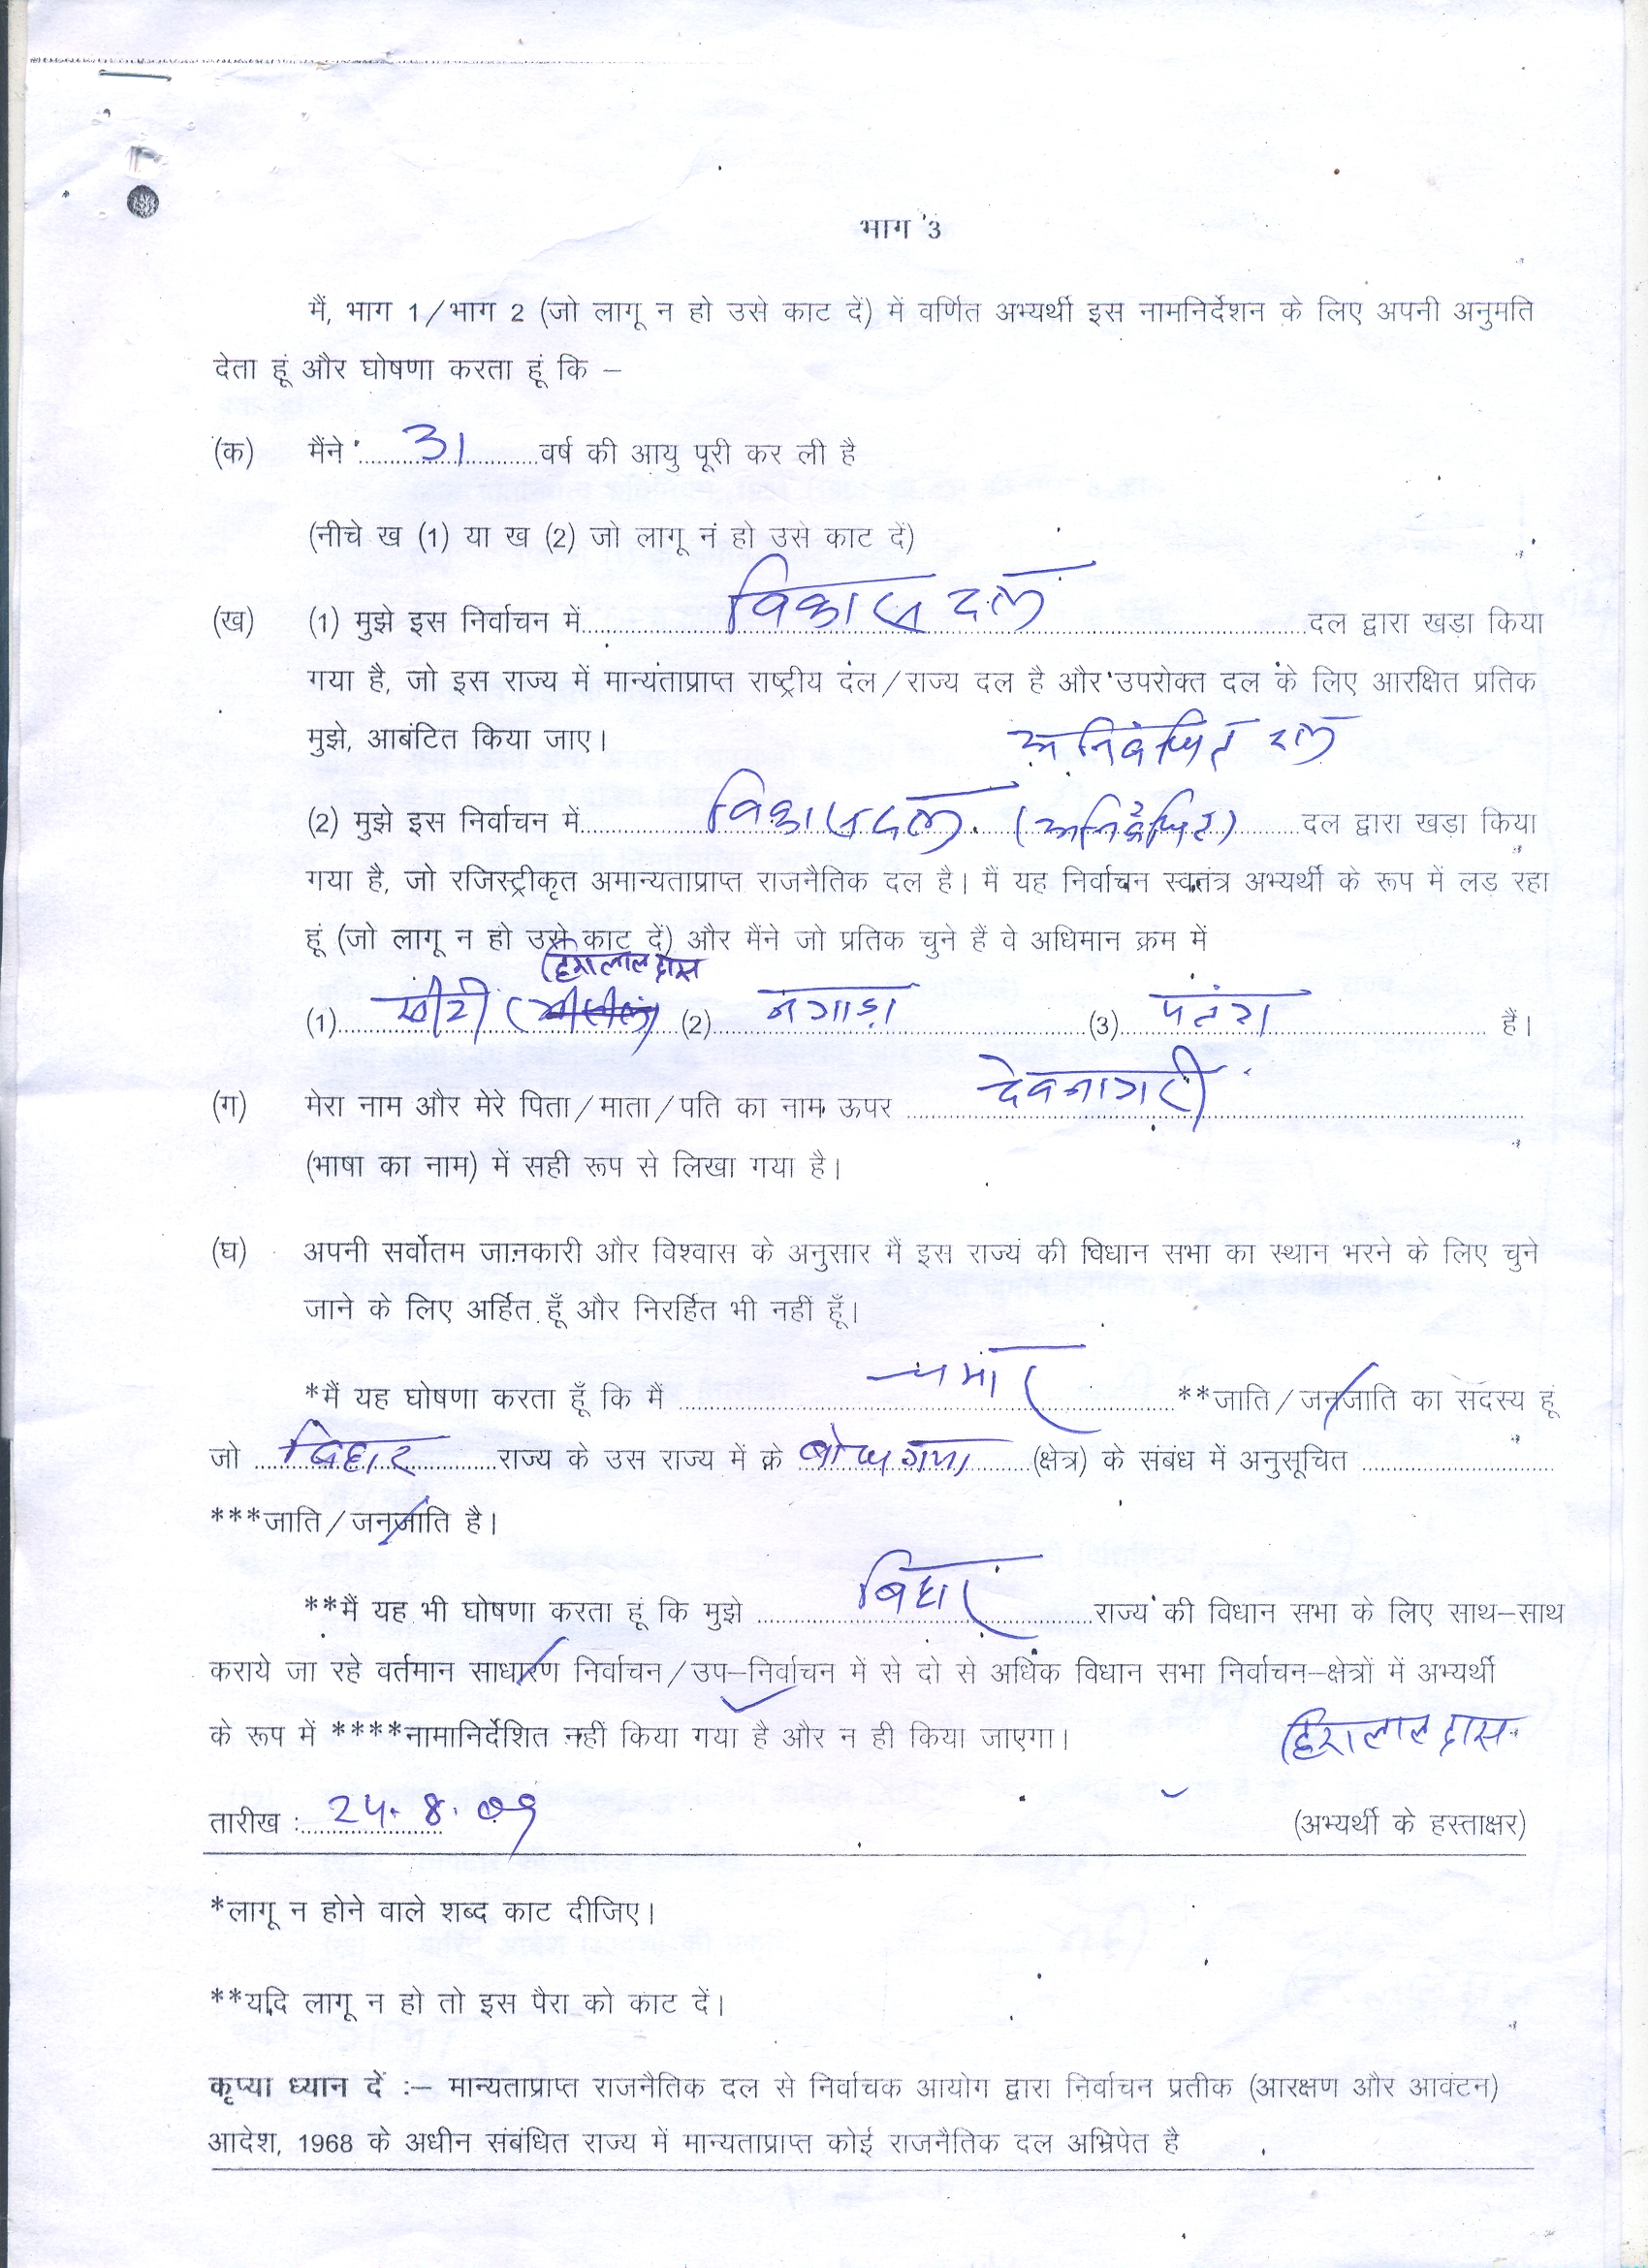 भाग 3
मैं, भाग 1/भाग 2 (जो लागू न हो उसे काट दें) में वर्णित अभ्यर्थी इस नामनिर्देशन के लिए अपनी अनुमति
देता हूं और घोषणा करता हूं कि –
(क) मैंने 31 वर्ष की आयु पूरी कर ली है
(नीचे ख (1) या ख (2) जो लागू न हो उसे काट दें)
(ख) (1) मुझे इस निर्वाचन में विकास दल दल द्वारा खड़ा किया
गया है, जो इस राज्य में मान्यताप्राप्त राष्ट्रीय दल/राज्य दल है और उपरोक्त दल के लिए आरक्षित प्रतिक
मुझे, आबंटित किया जाए।
दल
(2) मुझे इस निर्वाचन में विकास दल दल द्वारा खड़ा किया
गया है, जो रजिस्ट्रीकृत अमान्यताप्राप्त राजनैतिक दल है। मैं यह निर्वाचन स्वतंत्र अभ्यर्थी के रूप में लड़ रहा
हूं (जो लागू न हो उसे काट दें) और मैंने जो प्रतिक चुने हैं वे अधिमान क्रम में
हिरालाल दास
(1) (2) नगाड़ा (3) पतंग हैं।
(ग) मेरा नाम और मेरे पिता/माता/पति का नाम ऊपर देवनागरी
(भाषा का नाम) में सही रूप से लिखा गया है।
(घ) अपनी सर्वोतम जानकारी और विश्वास के अनुसार मैं इस राज्य की विधान सभा का स्थान भरने के लिए चुने
जाने के लिए अर्हित हूँ और निरर्हित भी नहीं हूँ।
*मैं यह घोषणा करता हूँ कि मैं चमार **जाति/जनजाति का सदस्य हूं
जो बिहार राज्य के उस राज्य में के बोधगया (क्षेत्र) के संबंध में अनुसूचित
***जाति/जनजाति है।
**मैं यह भी घोषणा करता हूं कि मुझे बिहार राज्य की विधान सभा के लिए साथ–साथ
कराये जा रहे वर्तमान साधारण निर्वाचन/उप–निर्वाचन में से दो से अधिक विधान सभा निर्वाचन–क्षेत्रों में अभ्यर्थी
के रूप में ****नामानिर्देशित नहीं किया गया है और न ही किया जाएगा।
हिरालाल दास
तारीख : 24.8.09 (अभ्यर्थी के हस्ताक्षर)
*लागू न होने वाले शब्द काट दीजिए।
**यदि लागू न हो तो इस पैरा को काट दें।
कृप्या ध्यान दें :– मान्यताप्राप्त राजनैतिक दल से निर्वाचक आयोग द्वारा निर्वाचन प्रतीक (आरक्षण और आवंटन)
आदेश, 1968 के अधीन संबंधित राज्य में मान्यताप्राप्त कोई राजनैतिक दल अभिप्रेत है